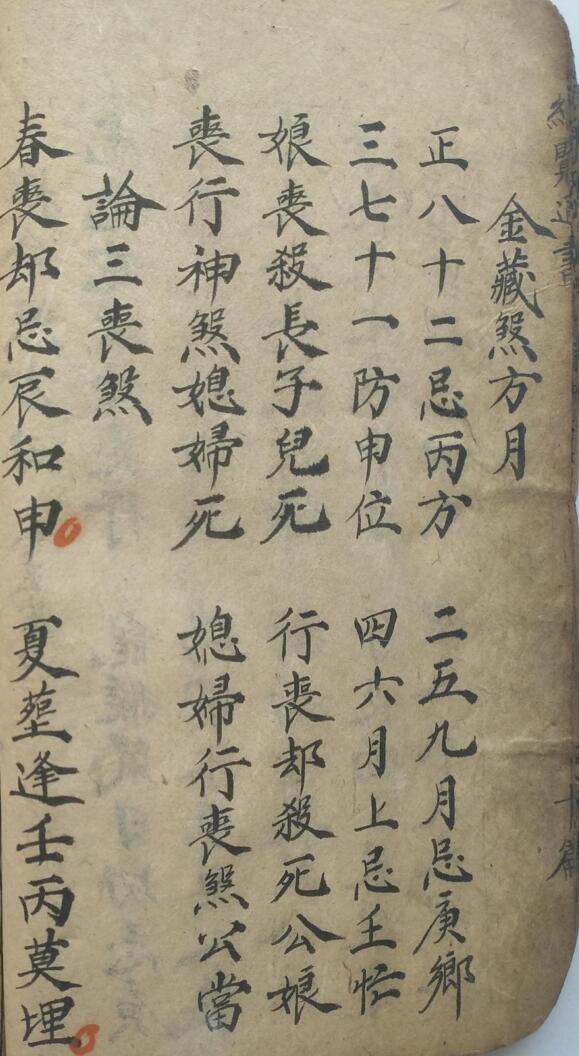 金藏煞方月
正八十二忌丙方 二五九月忌庚鄉
三七十一防申位 四六月上忌壬忙
娘喪殺長子兒死 行喪却殺死公娘
喪行神煞媳婦死 媳婦行喪煞公當
論三喪煞
春喪却忌辰和申 夏塟逢壬丙莫埋